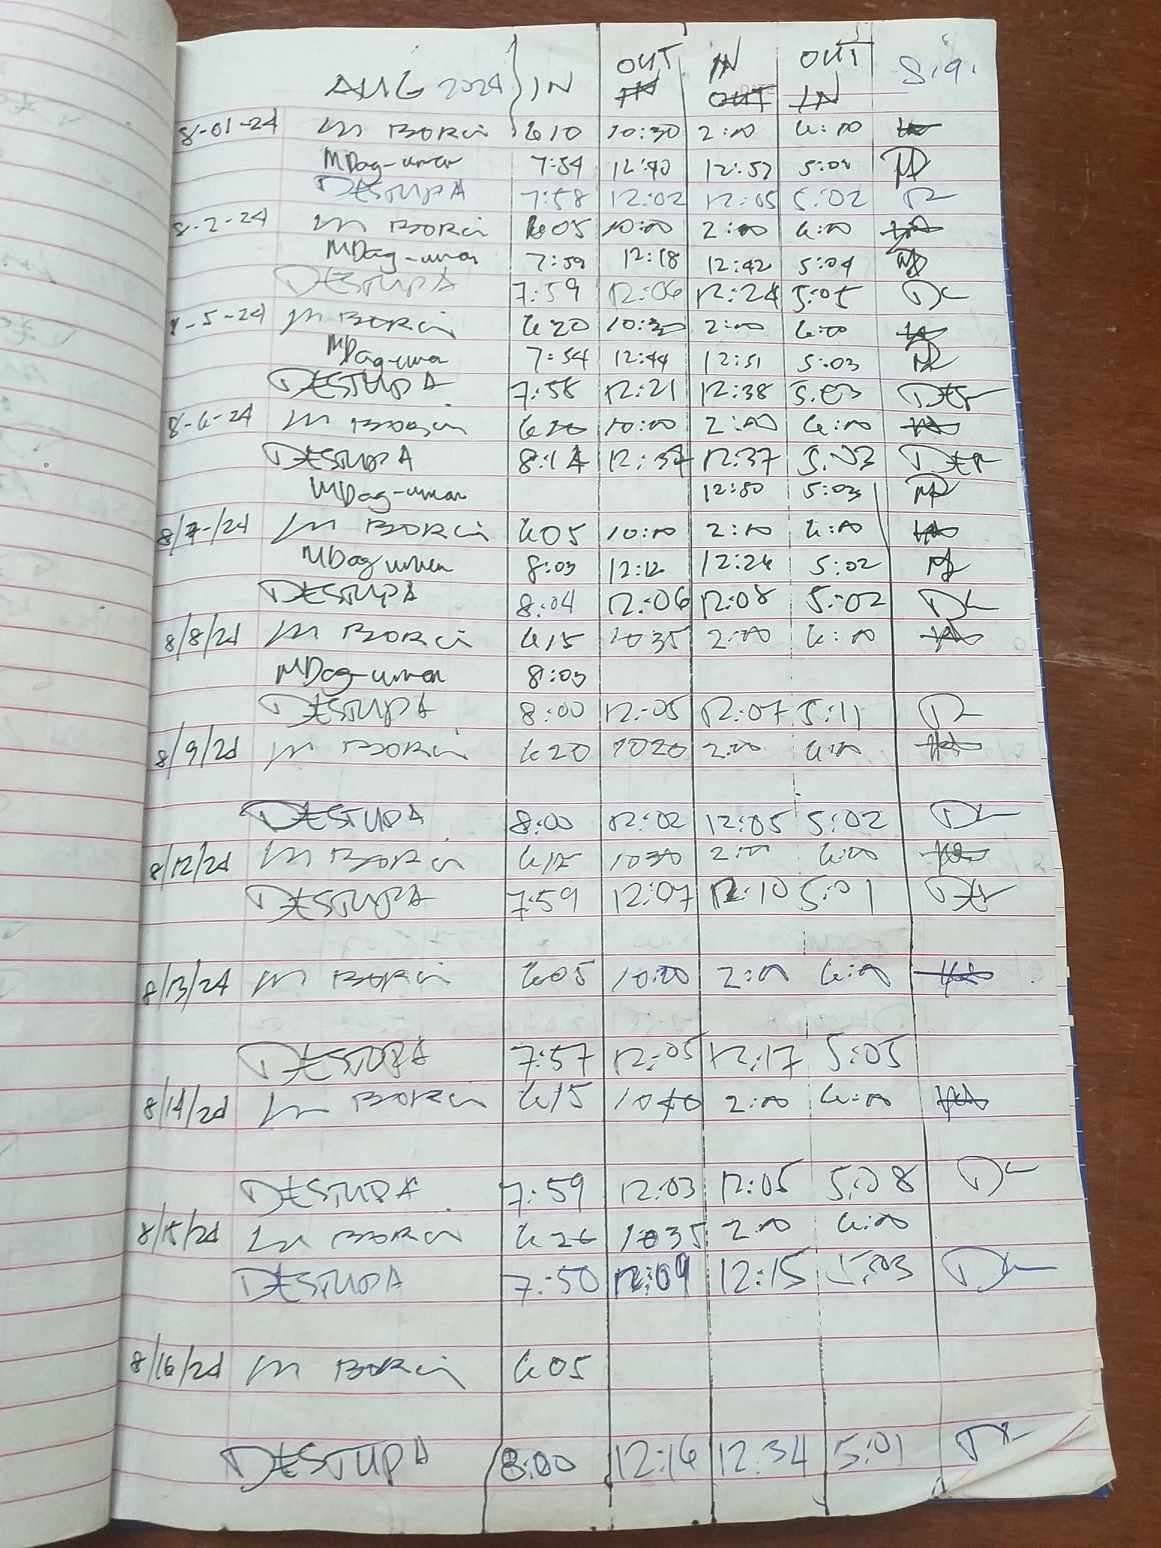 AUG 2024 IN OUT IN IN OUT OUT IN Sig.
8-01-24 M BORCI 610 10:30 2:00 4:00
MDag-uman 7:54 12:40 12:52 5:02
DESTUPA 7:58 12:02 12:05 5:02
8-2-24 M BORCI 605 10:00 2:00 4:00
MDag-uman 7:59 12:18 12:42 5:04
DESTUPA 7:59 12:06 12:24 5:05
8-5-24 M BORCI 620 10:30 2:00 4:00
MDag-uman 7:54 12:44 12:51 5:03
DESTUPA 7:58 12:21 12:38 5:03
8-6-24 M BORCI 620 10:00 2:00 4:00
DESTUPA 8:14 12:37 12:37 5:03
MDag-uman 12:50 5:03
8/7/24 M BORCI 605 10:00 2:00 4:00
MDag-uman 8:03 12:12 12:26 5:02
DESTUPA 8:04 12:06 12:08 5:02
8/8/24 M BORCI 615 1035 2:00 4:00
MDag-uman 8:03
DESTUPA 8:00 12:05 12:07 5:11
8/9/24 M BORCI 620 1020 2:00 4:00
DESTUPA 8:00 12:02 12:05 5:02
8/12/24 M BORCI 615 1030 2:00 4:00
DESTUPA 7:59 12:07 12:10 5:01
8/13/24 M BORCI 605 10:00 2:00 4:00
DESTUPA 7:57 12:05 12:17 5:05
8/14/24 M BORCI 615 1040 2:00 4:00
DESTUPA 7:59 12:03 12:05 5:08
8/15/24 M BORCI 626 1035 2:00 4:00
DESTUPA 7:50 12:09 12:15 5:03
8/16/24 M BORCI 605
DESTUPA 8:00 12:16 12:34 5:01